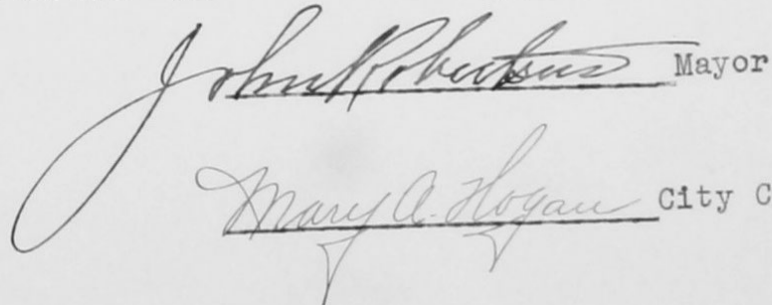 John Robertson Mayor
Mary A. Hogan City C